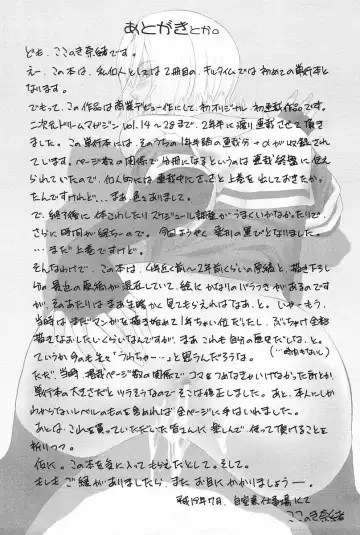 あとがきとか。
ども、ここのき奈緒です。
えー、この本は、私個人としては2冊目の、キルタイムでは初めての単行本と
なります。
でもって、この作品は商業デビュー作にして、初オリジナル、初連載作品です。
二次元ドリームマガジンvol.14～28まで、2年半に渡り連載させて頂き
ました。この単行本には、そのうちの1年半分の連載分+αが収録され
ています。ページ数の関係で分冊になるというのは連載終盤に伝え
られていたので、個人的には連載中にさっさと上巻を出しておきたかっ
たんですけれど…まあ、色々ありまして。
で、終了後に体こわしたりスケジュール調整がうまくいかなかったりで、
さらに時間が経ちーので。今回ようやく発刊の運びとなりました。
…まだ上巻ですけど。
そんなわけで、この本は、4年近く前～2年前くらいの原稿と、描き下ろし
分の最近の原稿が混在していて、絵にかなりのバラつきがあるのです
が、そのあたりはまあ生暖かく見てもらえればなあ、と。しゃーもう、
当時はまだマンガを描き始めて1年ちゃい位だったし、ぶっちゃけ全部
描きなおしたいくらいなんですが、まあこれも自分の歴史だしな、と。
ていうか今のも先々「うわちゃー…」と思うんだろうな。
(…時間もないし)
ただ、当時、掲載ページ数の関係で、コマをつめなきゃいけなかった所とか
単行本の大きさだとツラそうなので、そこは修正しました。あと、本人にしか
わからないレベルのものも含めれば全ページに手はいれました。
あとは、これを買っていただいた皆さんに楽しんで、使って頂けることを
祈りつつ。
仮に。この本を気に入ってもらえたとして。そして。
もしもご縁がありましたら、またお目にかかりましょうー。
平成19年7月、自室兼仕事場にて
ここのき奈緒